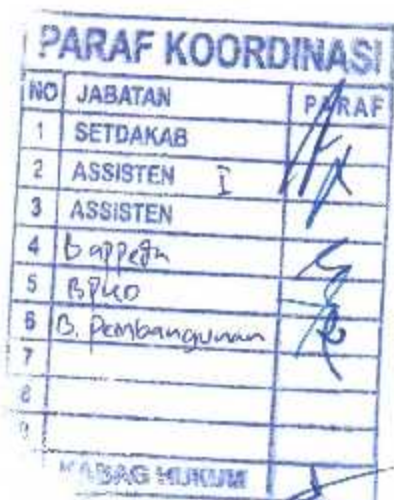 PARAF KOORDINASI
NO JABATAN PARAF
1 SETDAKAB
2 ASSISTEN I
3 ASSISTEN
4 Bappeda
5
6 B. Pembangunan
7
8
9
KABAG HUKUM